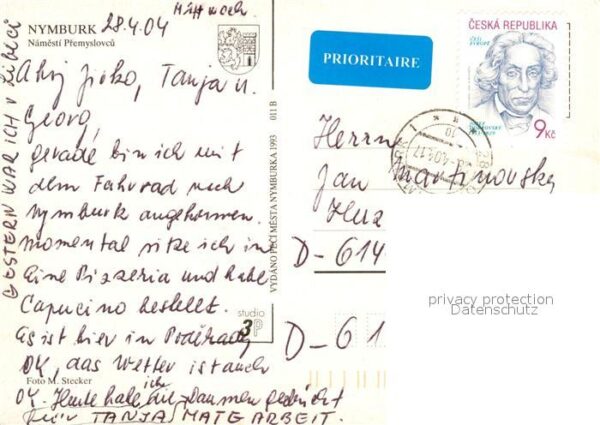 NYMBURK
Náměstí Přemyslovců
28.4.04 Mittwoch
Ahoj Jirko, Tanja u.
Georg,
gerade bin ich mit
dem Fahrrad nach
Nymburk angekommen.
Momental sitze ich in
eine Pizzeria und habe
Capucino bestellt.
Es ist hier in Poděbrady
OK, das Wetter ist auch
OK. Heute habe ich die Daumen gedrückt
für TANJAS MATE ARBEIT.
GESTERN WAR ICH V LIBECI
Foto M. Stecker
VYDÁNO PÉČÍ MĚSTA NYMBURKA 1993 011 B
studio
3P
PRIORITAIRE
ČESKÁ REPUBLIKA
9 Kč
Herrn
Jan Martinovský
D-614
D-61
privacy protection
Datenschutz